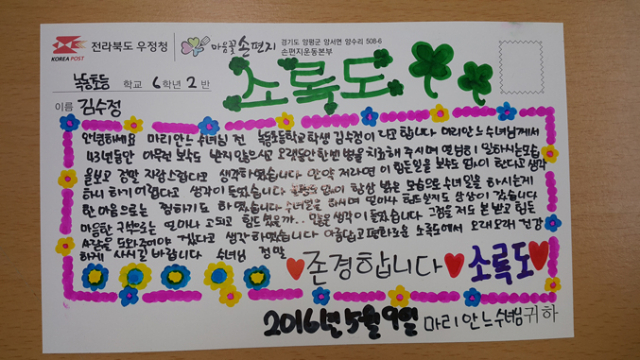 KOREA POST 전라북도 우정청 마음꽃 손편지
경기도 양평군 양서면 양수리 508-6
손편지운동본부
녹동초등 학교 6학년 2반
이름 김수정
소록도
안녕하세요 마리안느 수녀님 전 녹동초등학교학생 김수정이 라고 합니다 마리안느 수녀님께서
43년동안 아무런 보수도 받지않으시고 오랫동안 한센병을 치료해 주시며 열심히 일하시는모습
을보고 정말 자랑스럽다고 생각하였습니다 만약 저라면 이 힘든일을 보수도 없이 한다고 생각
하니 하기 어렵다고 생각이 들었습니다 항상 밝은 모습으로 수녀일을 하시는게
한마음으로는 하였습니다 수녀일을 하시며 얼마나 힘드실지도 상상이 갔습니다
마음한 구석으로는 얼마나 고되고 힘드셨을까.. 생각이 들었습니다 그럼을 저도 본받고 힘든
사람을 도와주어야 겠다고 생각하였습니다 아름답고평화로운 소록도에서 오래오래 건강
하게 사시길 바랍니다 수녀님 정말
존경합니다 소록도
2016년 5월 9일 마리안느수녀님귀하